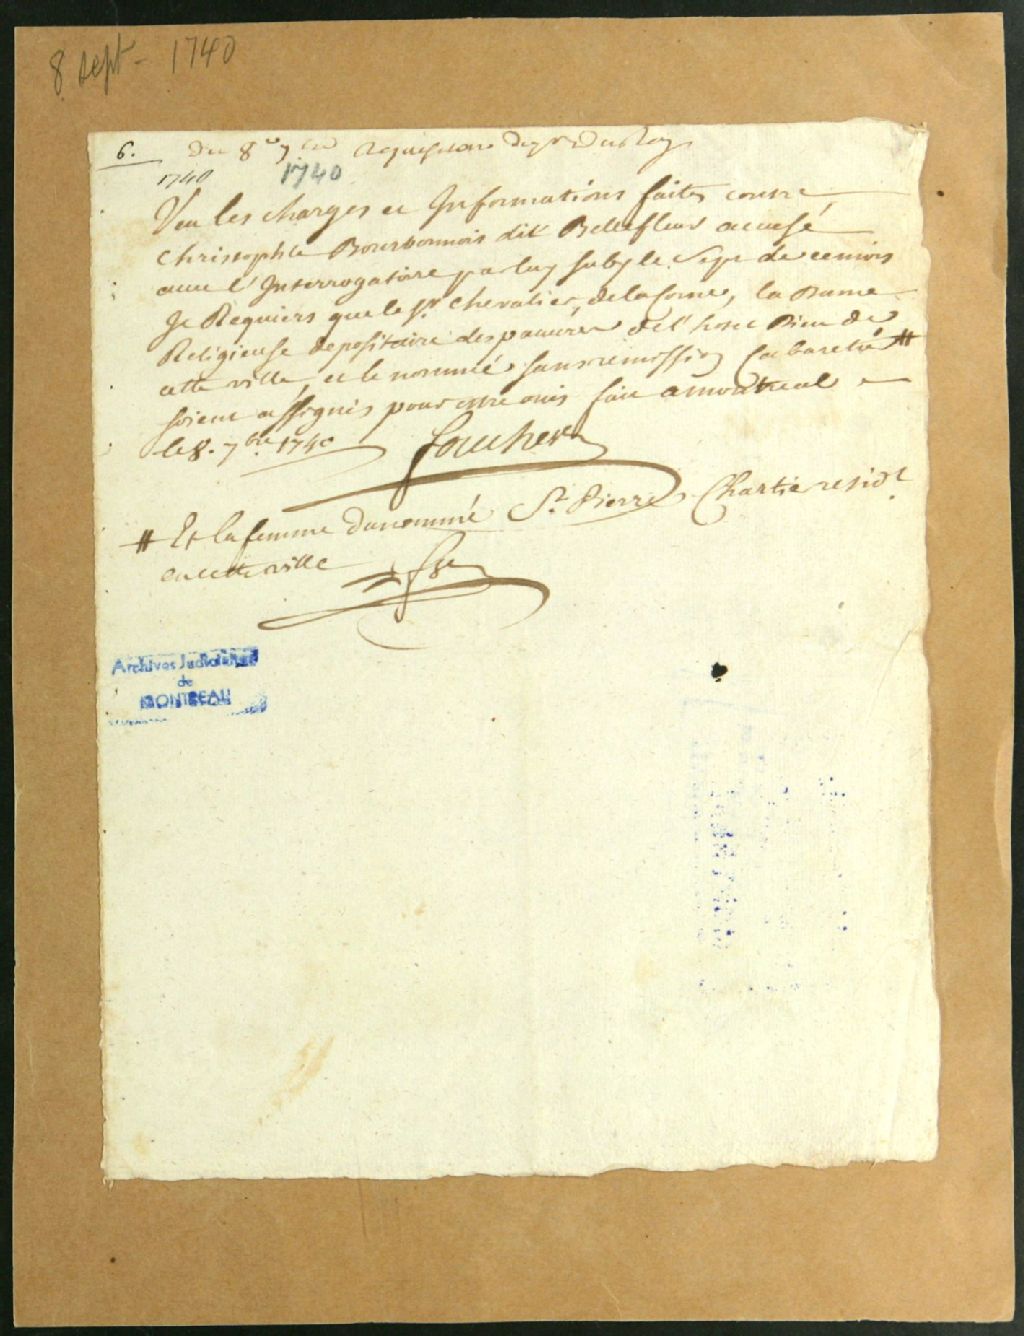 8 sept - 1740
6. Du 8e 7bre Requisitoire du pr du Roy
1740 1740
Veu les charges et Informations faites contre
Christophle Bourbonnois dit Bellefleur accusé
avec l'Interrogatoire par luy suby le Sept de ce mois
Je Requiers que le Sr. Chevalier de la Corne, la Dame
Religieuse depositaire des pauvres de l'hotel Dieu de
cette ville, et le nommé sans remission Cabaretié #
soient assignés pour être ouis fait a montreal
le 8. 7bre 1740 foucher
# Et la femme du nommé St. Pierre Chartié resid.t
en cette ville
Archives Judiciaires
de
MONTREAL